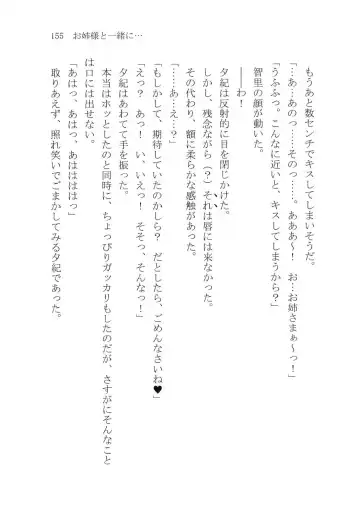 155　お姉様と一緒に…
もうあと数センチでキスしてしまいそうだ。
「…あ…あのっ……そのっ……。あああ〜！　お…お姉さまぁ〜っ！」
「うふふっ。こんなに近いと、キスしてしまうから？」
智里の顔が動いた。
――わ！
夕紀は反射的に目を閉じかけた。
しかし、残念ながら（？）それは唇には来なかった。
その代わり、額に柔らかな感触があった。
「……あ…え…？」
「もしかして、期待していたのかしら？　だとしたら、ごめんなさいね♥」
「えっ？　あっ！　い、いえっ！　そそっ、そんなっ！」
夕紀はあわてて手を振った。
本当はホッとしたのと同時に、ちょっぴりガッカリもしたのだが、さすがにそんなこと
は口には出せない。
「あはっ、あはっ、あはははっ」
取りあえず、照れ笑いでごまかしてみる夕紀であった。